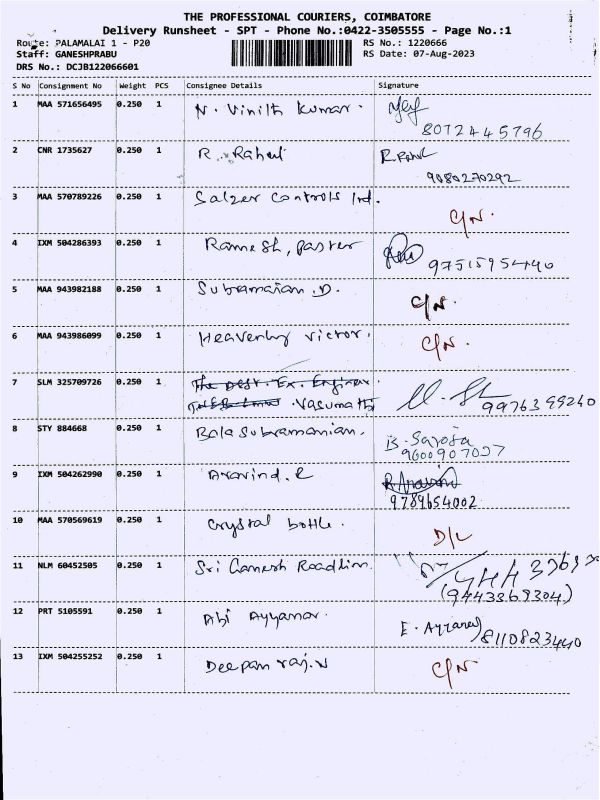 THE PROFESSIONAL COURIERS, COIMBATORE
Delivery Runsheet - SPT - Phone No.:0422-3505555 - Page No.:1
Route: PALAMALAI 1 - P20 RS No.: 1220666
Staff: GANESHPRABU RS Date: 07-Aug-2023
DRS No.: DCJB122066601
S No Consignment No Weight PCS Consignee Details Signature
1 MAA 571656495 0.250 1 N. Vinith Kumar.
8072445796
2 CNR 1735627 0.250 1 R. Rahul R. Rahul
9080270292
3 MAA 570789226 0.250 1 Salzer Controls Ltd.
C/N.
4 IXM 504286393 0.250 1 Ramesh, paster
9751595440
5 MAA 943982188 0.250 1 Subramaian. D.
C/N.
6 MAA 943986099 0.250 1 Heavenly victor.
C/N.
7 SLM 325709726 0.250 1 The Dest. Ex. Engineer.
. Vasumathi 9976399240
8 STY 884668 0.250 1 Bala Subramanian. B. Saroja
9600907027
9 IXM 504262990 0.250 1 Aravind. R R. Aravind
9789654002
10 MAA 570569619 0.250 1 Crystal bottle.
D/L
11 NLM 60452505 0.250 1 Sri Ganesh Roadlin.
(9443369304)
12 PRT 5105591 0.250 1 Abi Ayyanar. E. Ayyanar
8110823440
13 IXM 504255252 0.250 1 Deepan raj. N C/N